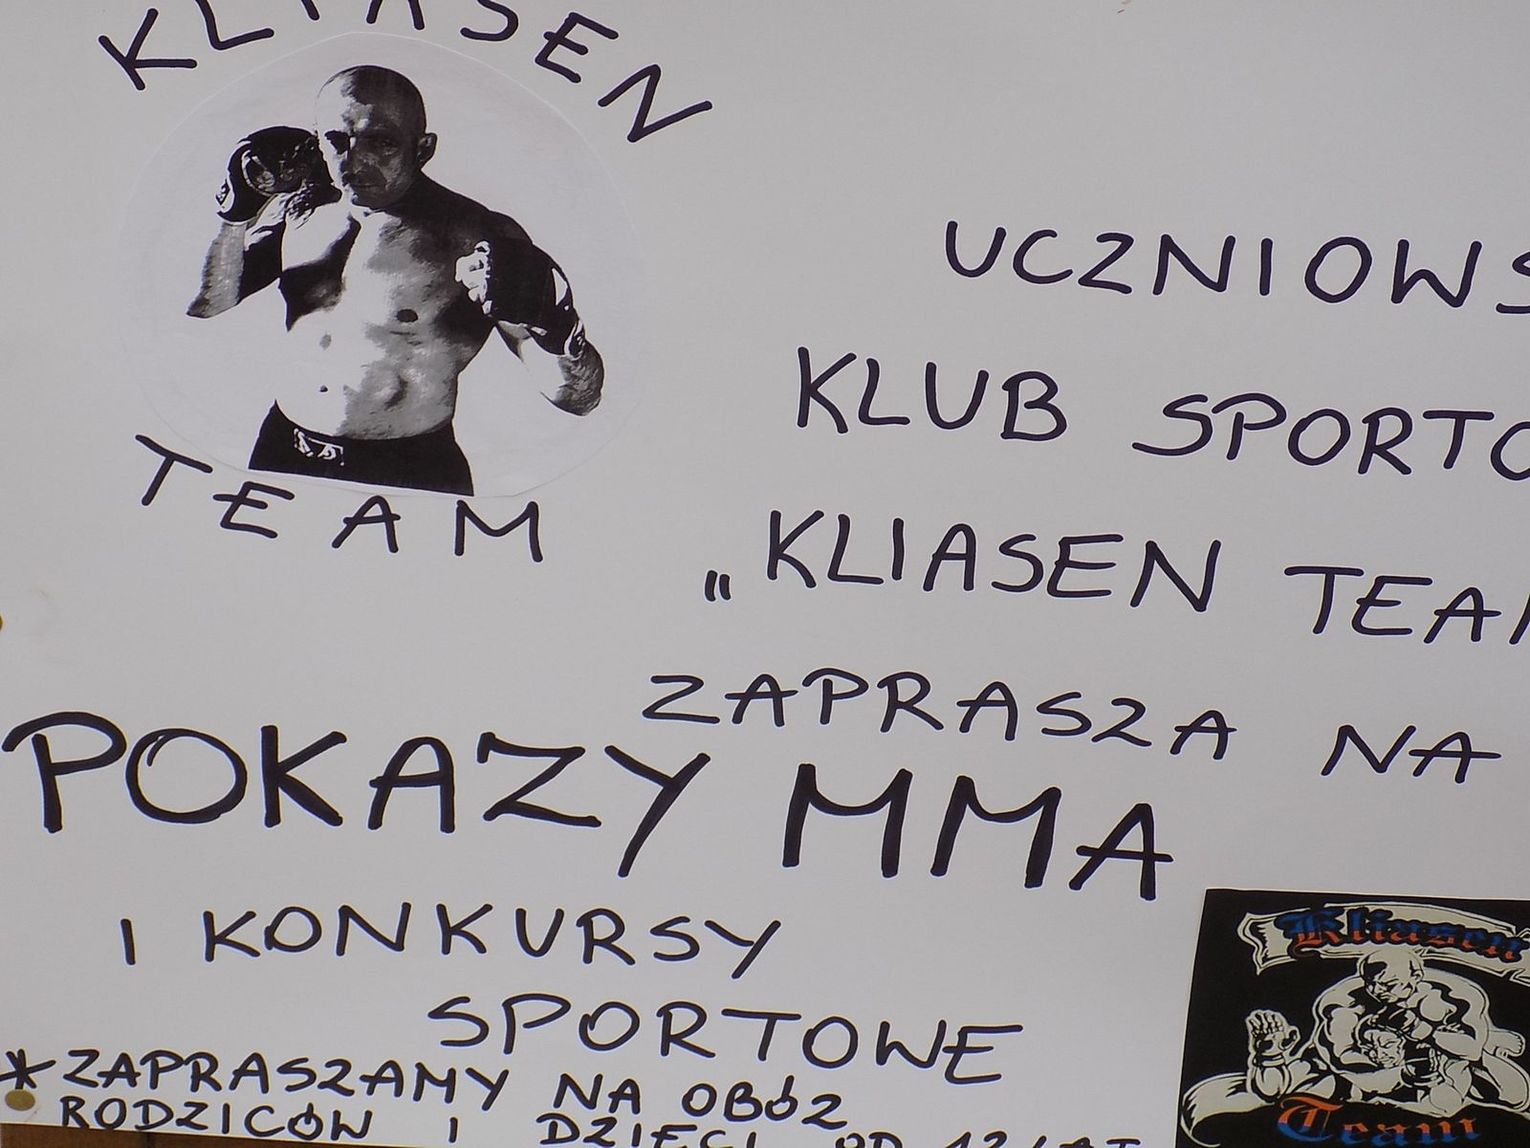 KLIASEN
TEAM
UCZNIOWS
KLUB SPORTO
„KLIASEN TEAM
ZAPRASZA NA
POKAZY MMA
I KONKURSY
SPORTOWE
*ZAPRASZAMY NA OBÓZ
RODZICÓW I DZIECI OD 12 LAT
Kliasen
Team